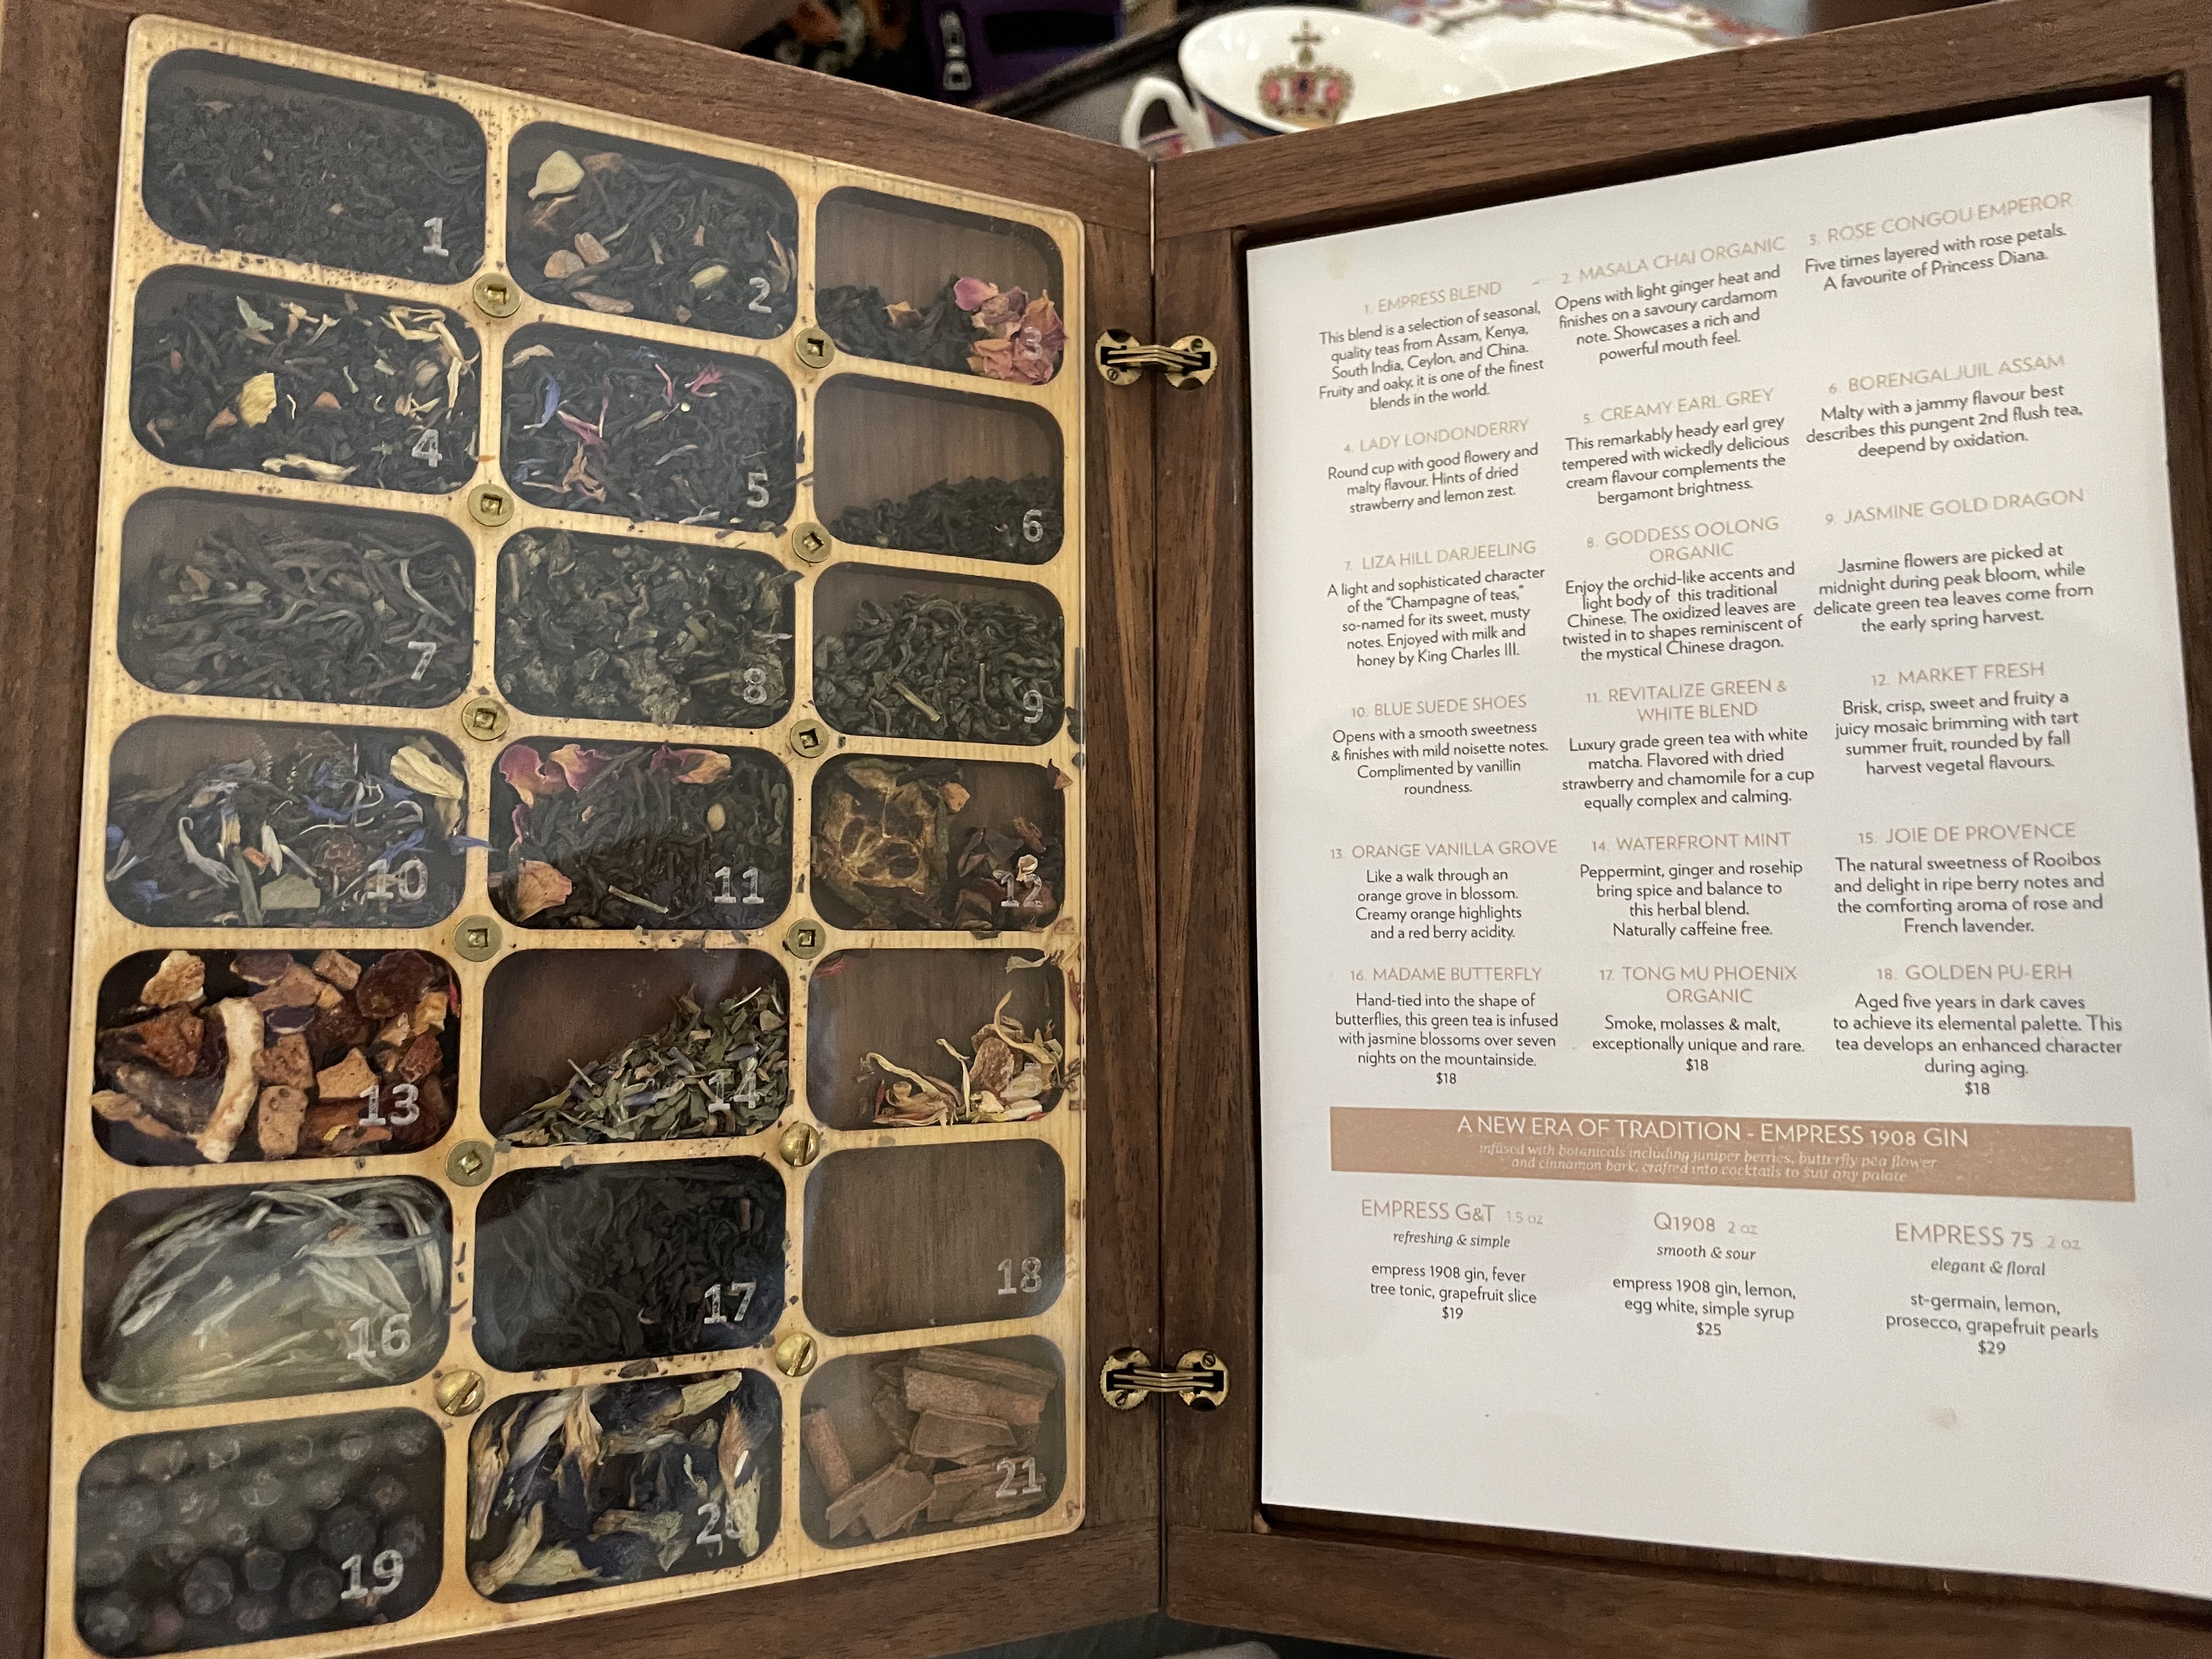 1
2
3
4
5
6
7
8
9
10
11
12
13
14
16
17
18
19
20
21
1. EMPRESS BLEND
This blend is a selection of seasonal,
quality teas from Assam, Kenya,
South India, Ceylon, and China.
Fruity and oaky, it is one of the finest
blends in the world.
2. MASALA CHAI ORGANIC
Opens with light ginger heat and
finishes on a savoury cardamom
note. Showcases a rich and
powerful mouth feel.
3. ROSE CONGOU EMPEROR
Five times layered with rose petals.
A favourite of Princess Diana.
4. LADY LONDONDERRY
Round cup with good flowery and
malty flavour. Hints of dried
strawberry and lemon zest.
5. CREAMY EARL GREY
This remarkably heady earl grey
tempered with wickedly delicious
cream flavour complements the
bergamont brightness.
6. BORENGALJUIL ASSAM
Malty with a jammy flavour best
describes this pungent 2nd flush tea,
deepend by oxidation.
7. LIZA HILL DARJEELING
A light and sophisticated character
of the "Champagne of teas,"
so-named for its sweet, musty
notes. Enjoyed with milk and
honey by King Charles III.
8. GODDESS OOLONG
ORGANIC
Enjoy the orchid-like accents and
light body of this traditional
Chinese. The oxidized leaves are
twisted in to shapes reminiscent of
the mystical Chinese dragon.
9. JASMINE GOLD DRAGON
Jasmine flowers are picked at
midnight during peak bloom, while
delicate green tea leaves come from
the early spring harvest.
10. BLUE SUEDE SHOES
Opens with a smooth sweetness
& finishes with mild noisette notes.
Complimented by vanillin
roundness.
11. REVITALIZE GREEN &
WHITE BLEND
Luxury grade green tea with white
matcha. Flavored with dried
strawberry and chamomile for a cup
equally complex and calming.
12. MARKET FRESH
Brisk, crisp, sweet and fruity a
juicy mosaic brimming with tart
summer fruit, rounded by fall
harvest vegetal flavours.
13. ORANGE VANILLA GROVE
Like a walk through an
orange grove in blossom.
Creamy orange highlights
and a red berry acidity.
14. WATERFRONT MINT
Peppermint, ginger and rosehip
bring spice and balance to
this herbal blend.
Naturally caffeine free.
15. JOIE DE PROVENCE
The natural sweetness of Rooibos
and delight in ripe berry notes and
the comforting aroma of rose and
French lavender.
16. MADAME BUTTERFLY
Hand-tied into the shape of
butterflies, this green tea is infused
with jasmine blossoms over seven
nights on the mountainside.
$18
17. TONG MU PHOENIX
ORGANIC
Smoke, molasses & malt,
exceptionally unique and rare.
$18
18. GOLDEN PU-ERH
Aged five years in dark caves
to achieve its elemental palette. This
tea develops an enhanced character
during aging.
$18
A NEW ERA OF TRADITION - EMPRESS 1908 GIN
infused with botanicals including juniper berries, butterfly pea flower
and cinnamon bark, crafted into cocktails to suit any palate
EMPRESS G&T 1.5 oz
refreshing & simple
empress 1908 gin, fever
tree tonic, grapefruit slice
$19
Q1908 2 oz
smooth & sour
empress 1908 gin, lemon,
egg white, simple syrup
$25
EMPRESS 75 2 oz
elegant & floral
st-germain, lemon,
prosecco, grapefruit pearls
$29